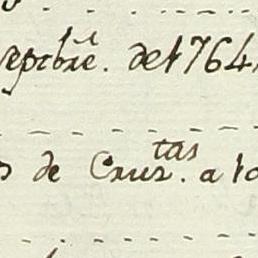 eptbre. de 1764
s de Cruz.tas a lo